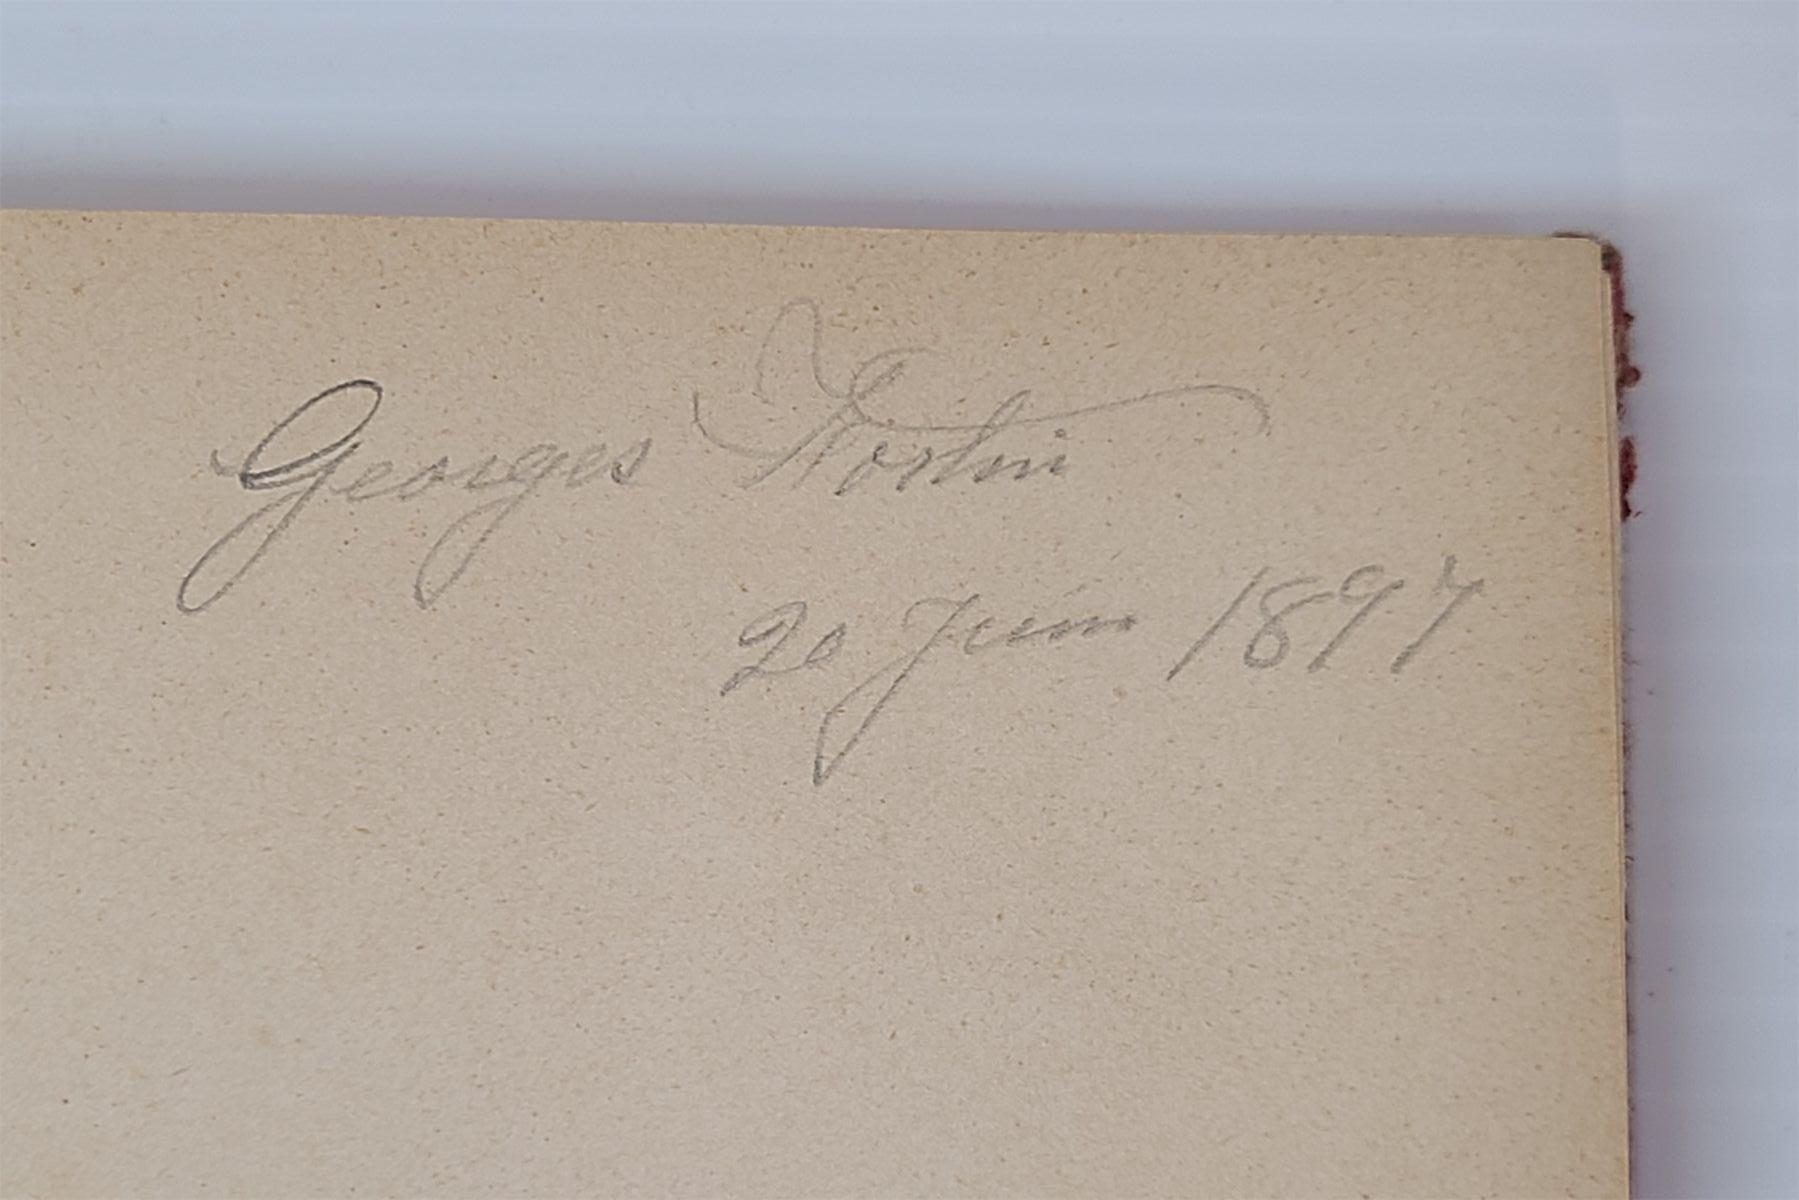 Georges Fortin
20 Juin 1897